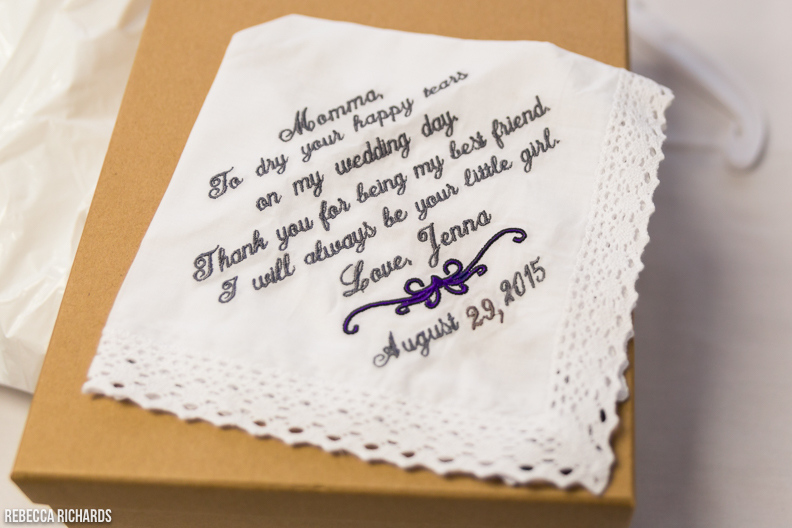 Momma,
To dry your happy tears
on my wedding day.
Thank you for being my best friend.
I will always be your little girl.
Love, Jenna
August 29, 2015
REBECCA RICHARDS